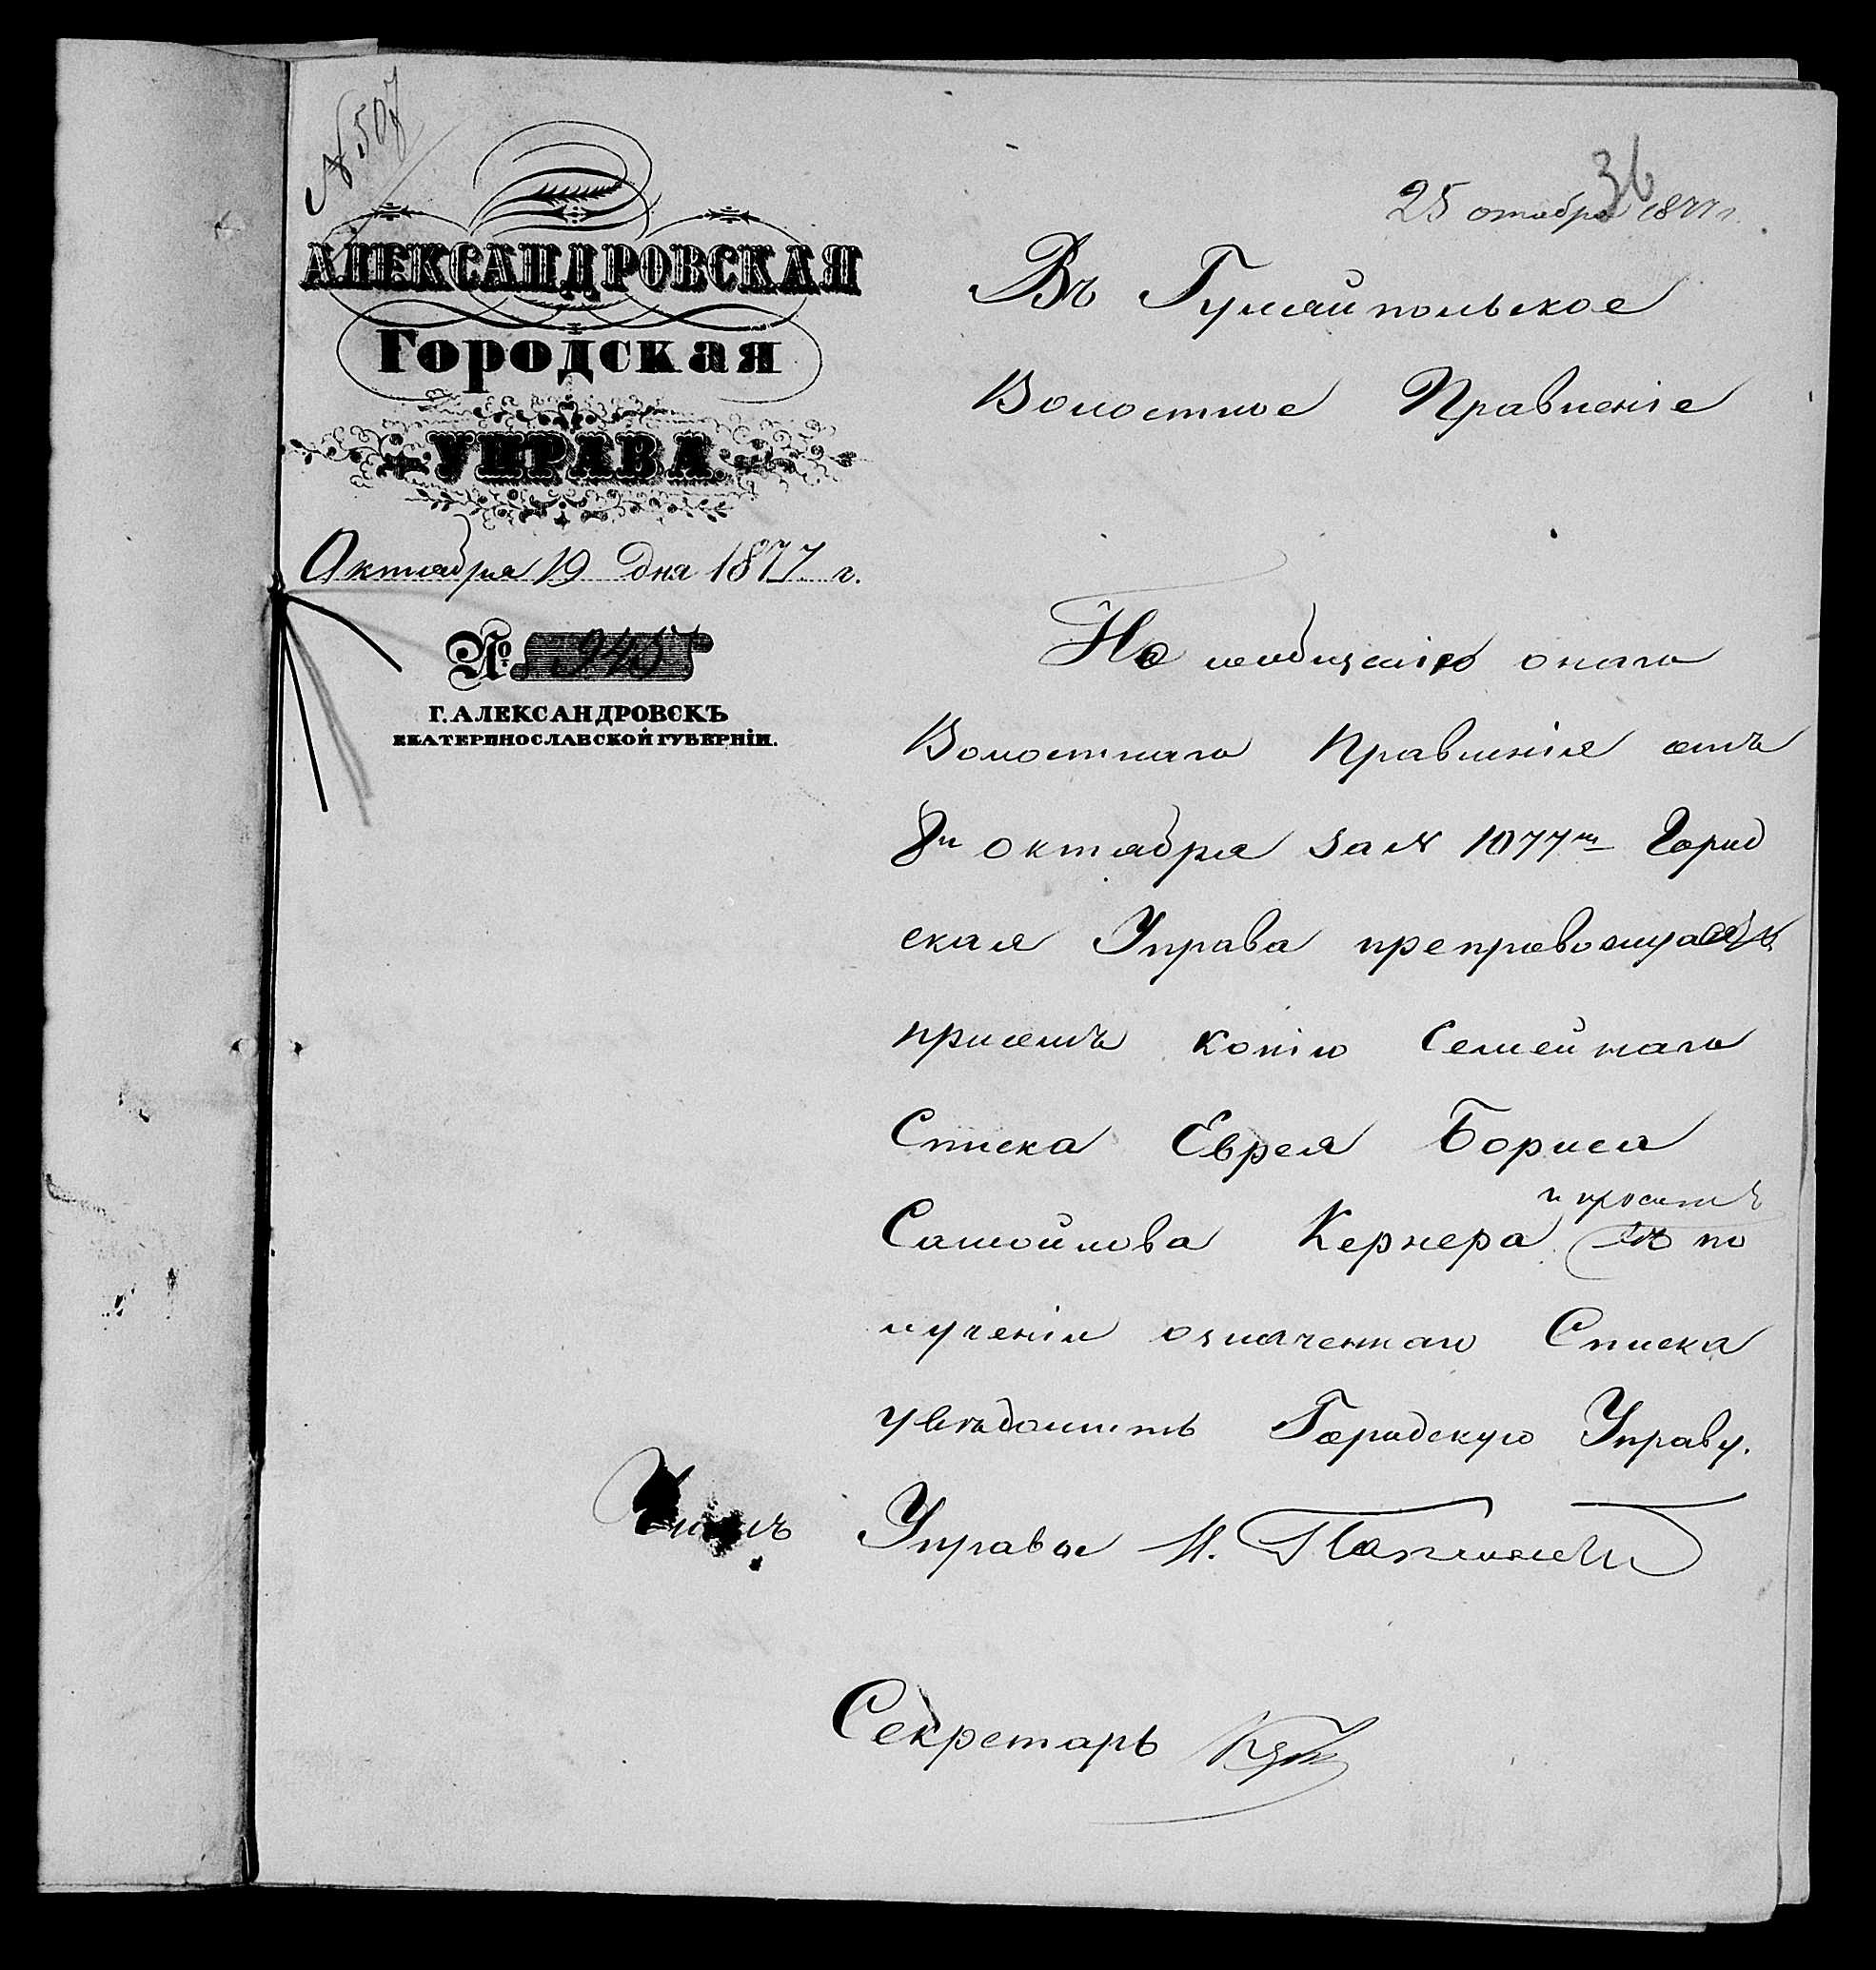 № 507
36
25 октября 1877 г.
АЛЕКСАНДРОВСКАЯ
Городская
УПРАВА
Октября 19 дня 1877 г.
№ 945
Г. АЛЕКСАНДРОВСКЪ
ЕКАТЕРИНОСЛАВСКОЙ ГУБЕРНІИ.
Въ Гуляйпольское
Волостное Правленіе
На сообщеніе онаго
Волостнаго Правленія отъ
8го октября за № 1077м Город
ская Управа препровождая
при семъ копію Семейнаго
Списка Еврея Бориса
Самойлова Кернера и проситъ
по
лученіи означеннаго Списка
увѣдомить Городскую Управу.
Членъ Управы
Секретарь